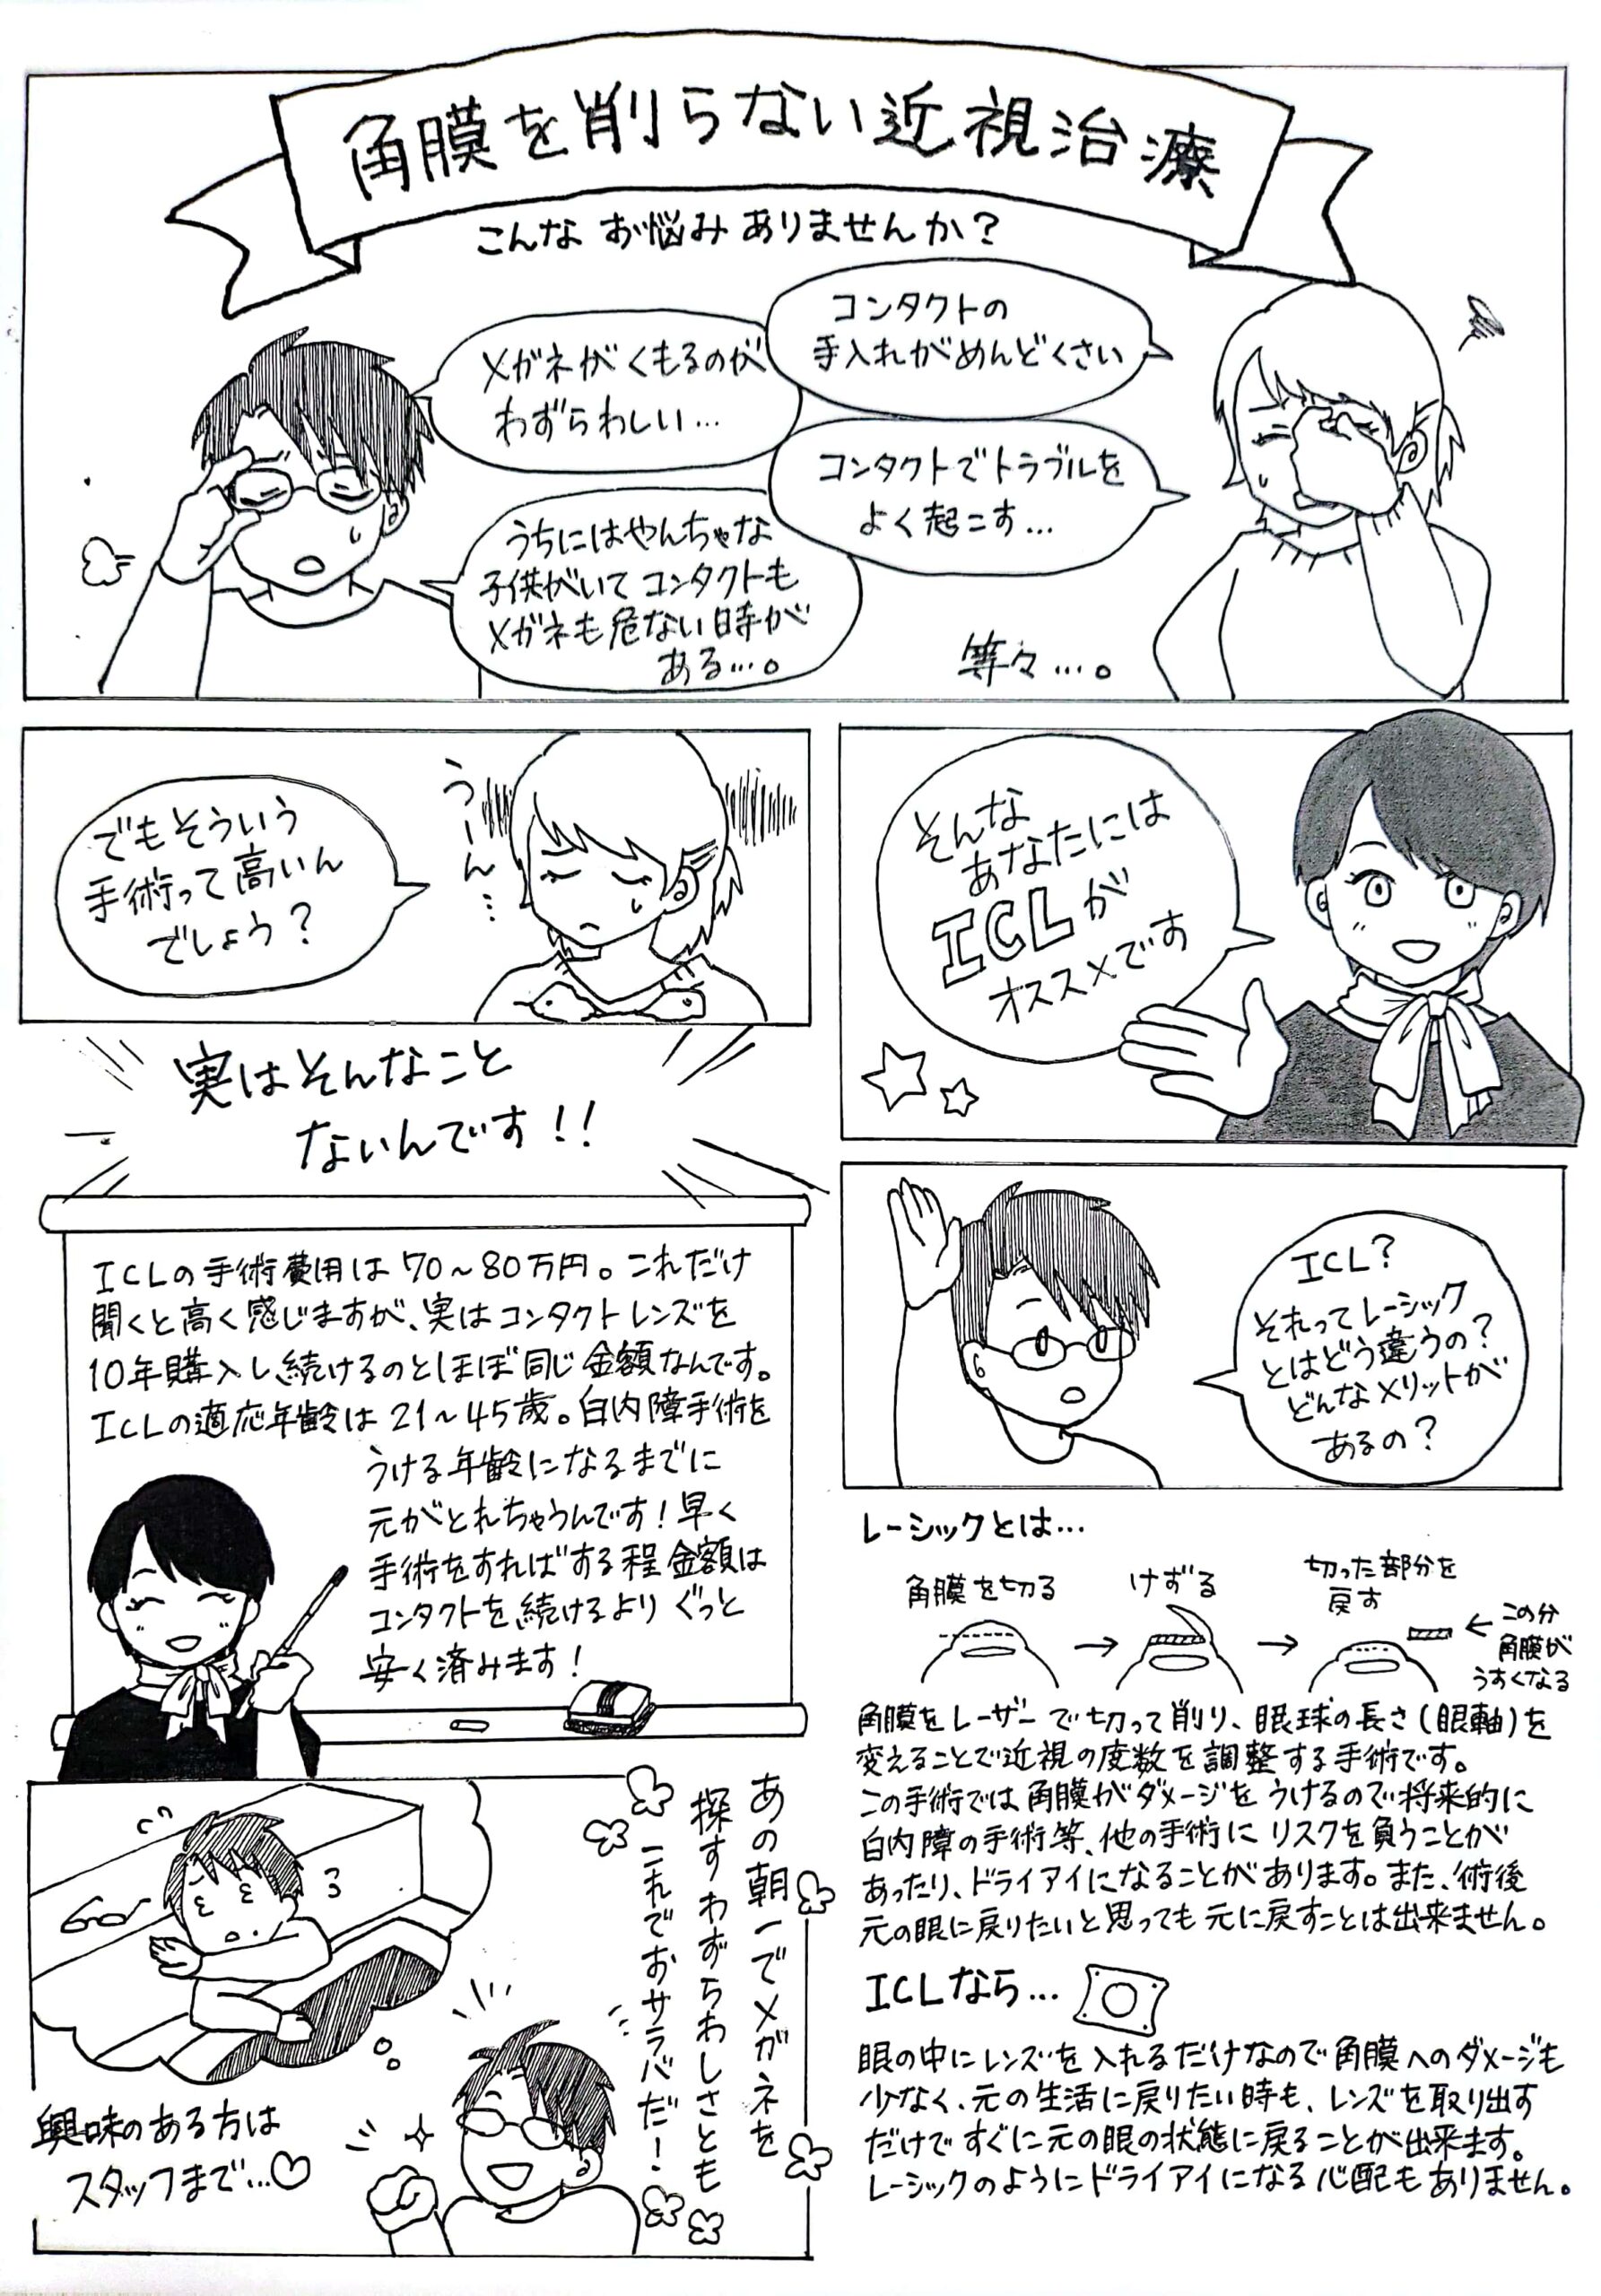 角膜を削らない近視治療
こんな お悩み ありませんか?
コンタクトの
手入れがめんどくさい
メガネがくもるのが
わずらわしい…
コンタクトでトラブルを
よく起こす…
うちにはやんちゃな
子供がいて コンタクトも
メガネも危ない時が
ある…。
等々…。
そんな
あなたには
ICLが
オススメです
ICL?
それってレーシック
とはどう違うの?
どんなメリットが
あるの?
レーシックとは…
角膜を切る
けずる
切った部分を
戻す
この分
角膜が
うすくなる
角膜をレーザーで切って削り、眼球の長さ(眼軸)を
変えることで近視の度数を調整する手術です。
この手術では角膜がダメージをうけるので将来的に
白内障の手術等、他の手術にリスクを負うことが
あったり、ドライアイになることがあります。また、術後
元の眼に戻りたいと思っても元に戻すことは出来ません。
ICLなら…
眼の中にレンズを入れるだけなので角膜へのダメージも
少なく、元の生活に戻りたい時も、レンズを取り出す
だけですぐに元の眼の状態に戻ることが出来ます。
レーシックのようにドライアイになる心配もありません。
うーん…
でもそういう
手術って高いん
でしょう?
実はそんなこと
ないんです!!
ICLの手術費用は70~80万円。これだけ
聞くと高く感じますが、実はコンタクトレンズを
10年購入し続けるのとほぼ同じ金額なんです。
ICLの適応年齢は21~45歳。白内障手術を
うける年齢になるまでに
元がとれちゃうんです!早く
手術をすればする程金額は
コンタクトを続けるよりぐっと
安く済みます!
あの朝一でメガネを
探すわずらわしさとも
これでおサラバだ!
興味のある方は
スタッフまで…♡